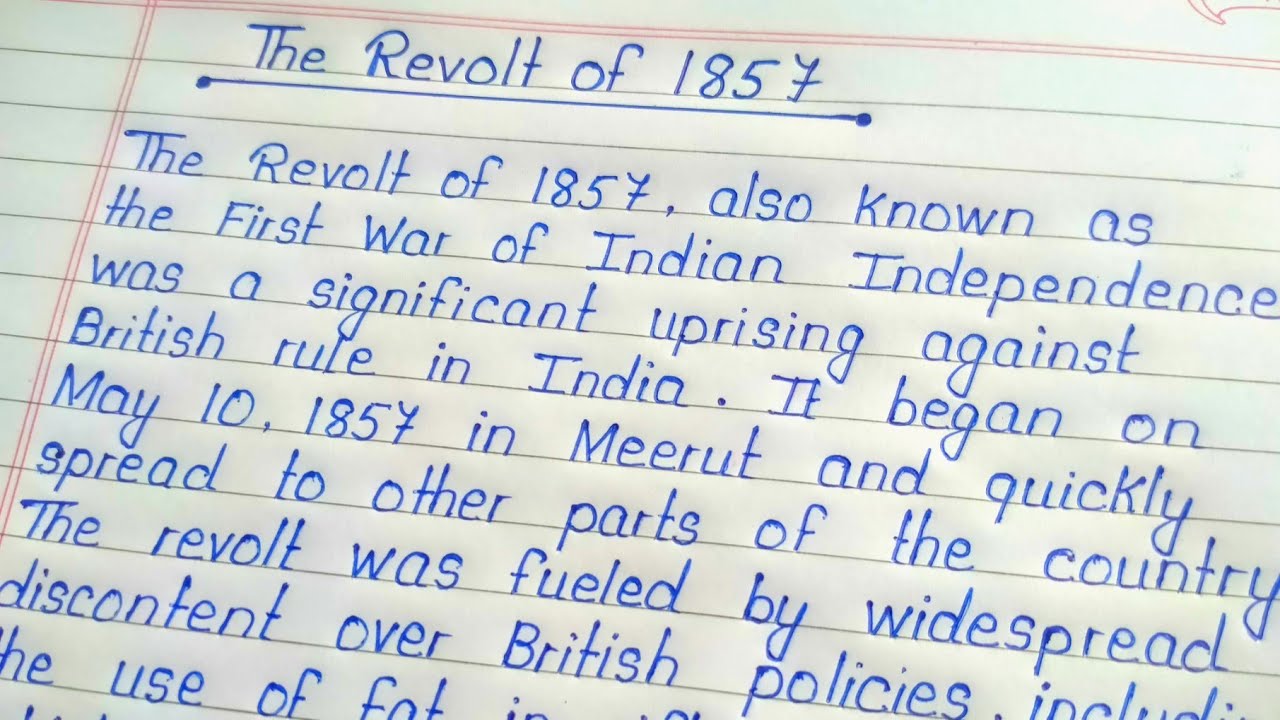 The Revolt of 1857
The Revolt of 1857, also known as
the First War of Indian Independence
was a significant uprising against
British rule in India. It began on
May 10, 1857 in Meerut and quickly
spread to other parts of the country
The revolt was fueled by widespread
discontent over British policies, includi
he use of fat in